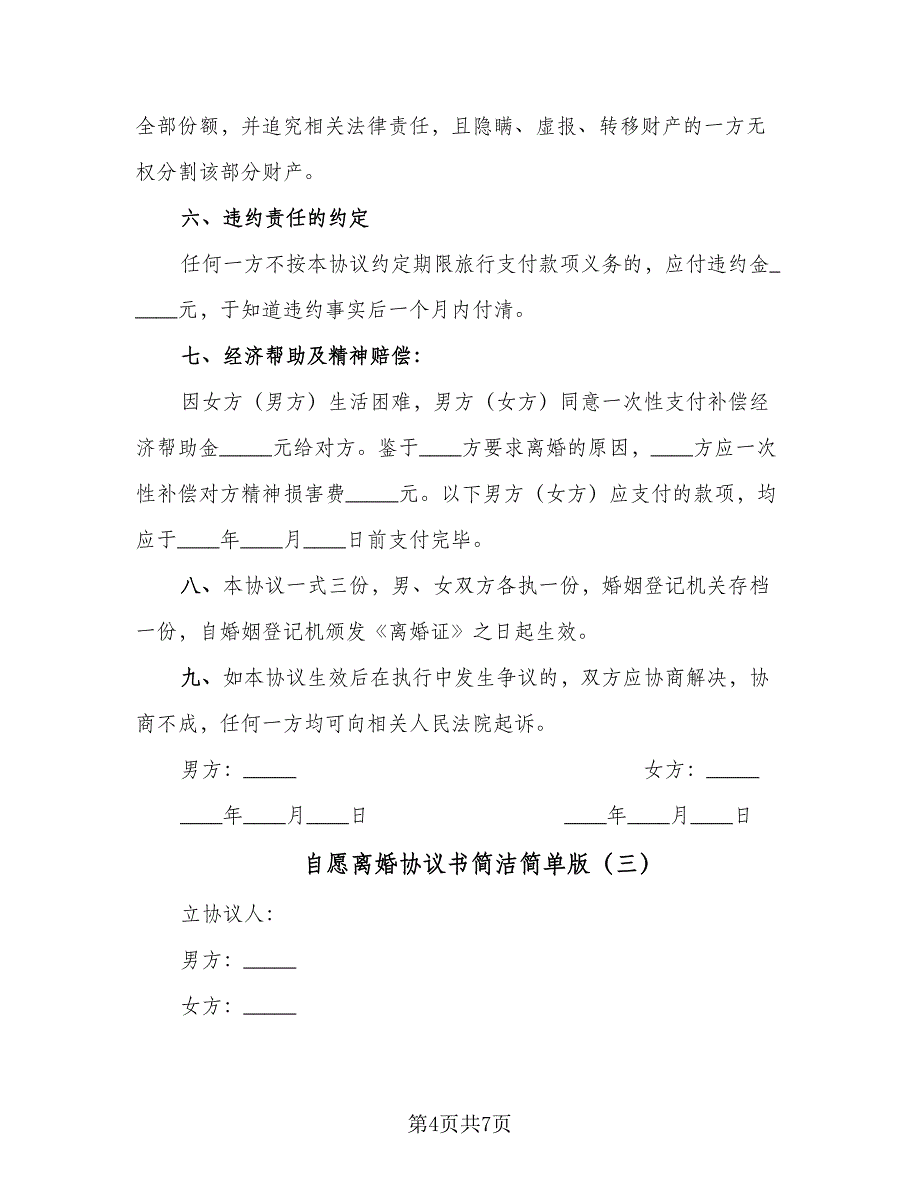 全部份额，并追究相关法律责任，且隐瞒、虚报、转移财产的一方无
权分割该部分财产。
六、违约责任的约定
任何一方不按本协议约定期限旅行支付款项义务的，应付违约金_
____元，于知道违约事实后一个月内付清。
七、经济帮助及精神赔偿：
因女方（男方）生活困难，男方（女方）同意一次性支付补偿经
济帮助金_____元给对方。鉴于____方要求离婚的原因，____方应一次
性补偿对方精神损害费_____元。以下男方（女方）应支付的款项，均
应于____年____月____日前支付完毕。
八、本协议一式三份，男、女双方各执一份，婚姻登记机关存档
一份，自婚姻登记机颁发《离婚证》之日起生效。
九、如本协议生效后在执行中发生争议的，双方应协商解决，协
商不成，任何一方均可向相关人民法院起诉。
男方：_____ 女方：_____
____年____月____日 ____年____月____日
自愿离婚协议书简洁简单版（三）
立协议人：
男方：_____
女方：_____
第4页共7页